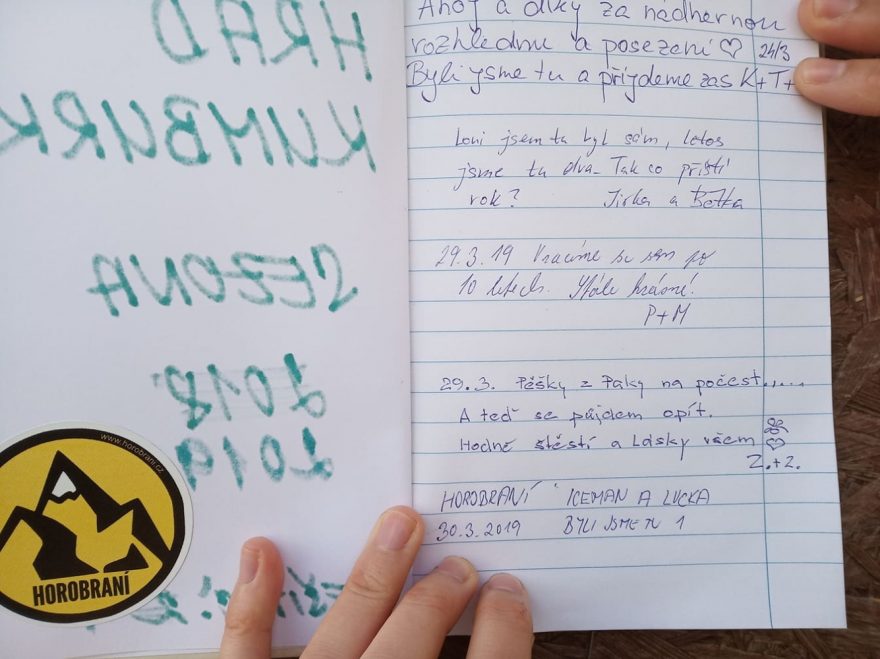 HRAD
KUMBURK
SEZONA
2018
2019
www.horobrani.cz
HOROBRANÍ
Ahoj a díky za nádhernou
rozhlednu a posezení ♡ 24/3
Byli jsme tu a přijdeme zas K+T+
Loni jsem tu byl sám, letos
jsme tu dva. Tak co příští
rok? Jirka a Bětka
29.3.19 Vracíme se sem po
10 letech. Stále krásné!
P+M
29.3. Pěšky z Paky na počest......
A teď se půjdem opít.
Hodně štěstí a Lásky všem ♡
Z.+Z.
HOROBRANÍ ICEMAN A LUCKA
30.3.2019 BYLI JSME TU